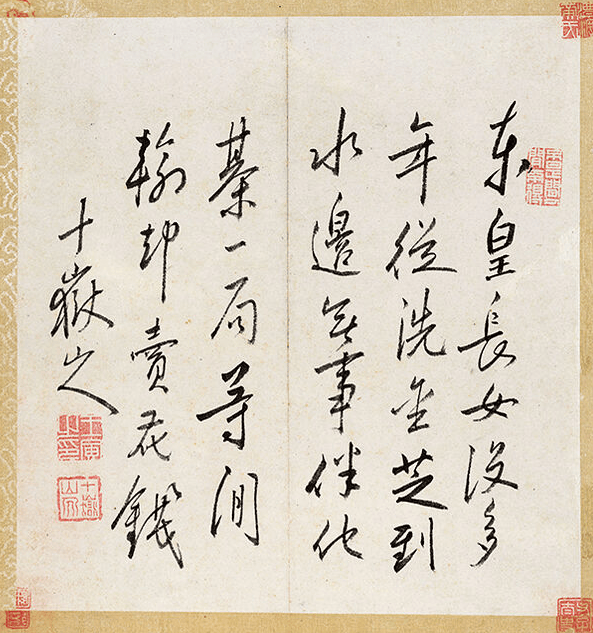 東皇長女沒多
年從洗金芝到
水邊無事伴他
棊一局等閒
輸却賣花錢
十嶽山人
十嶽山人